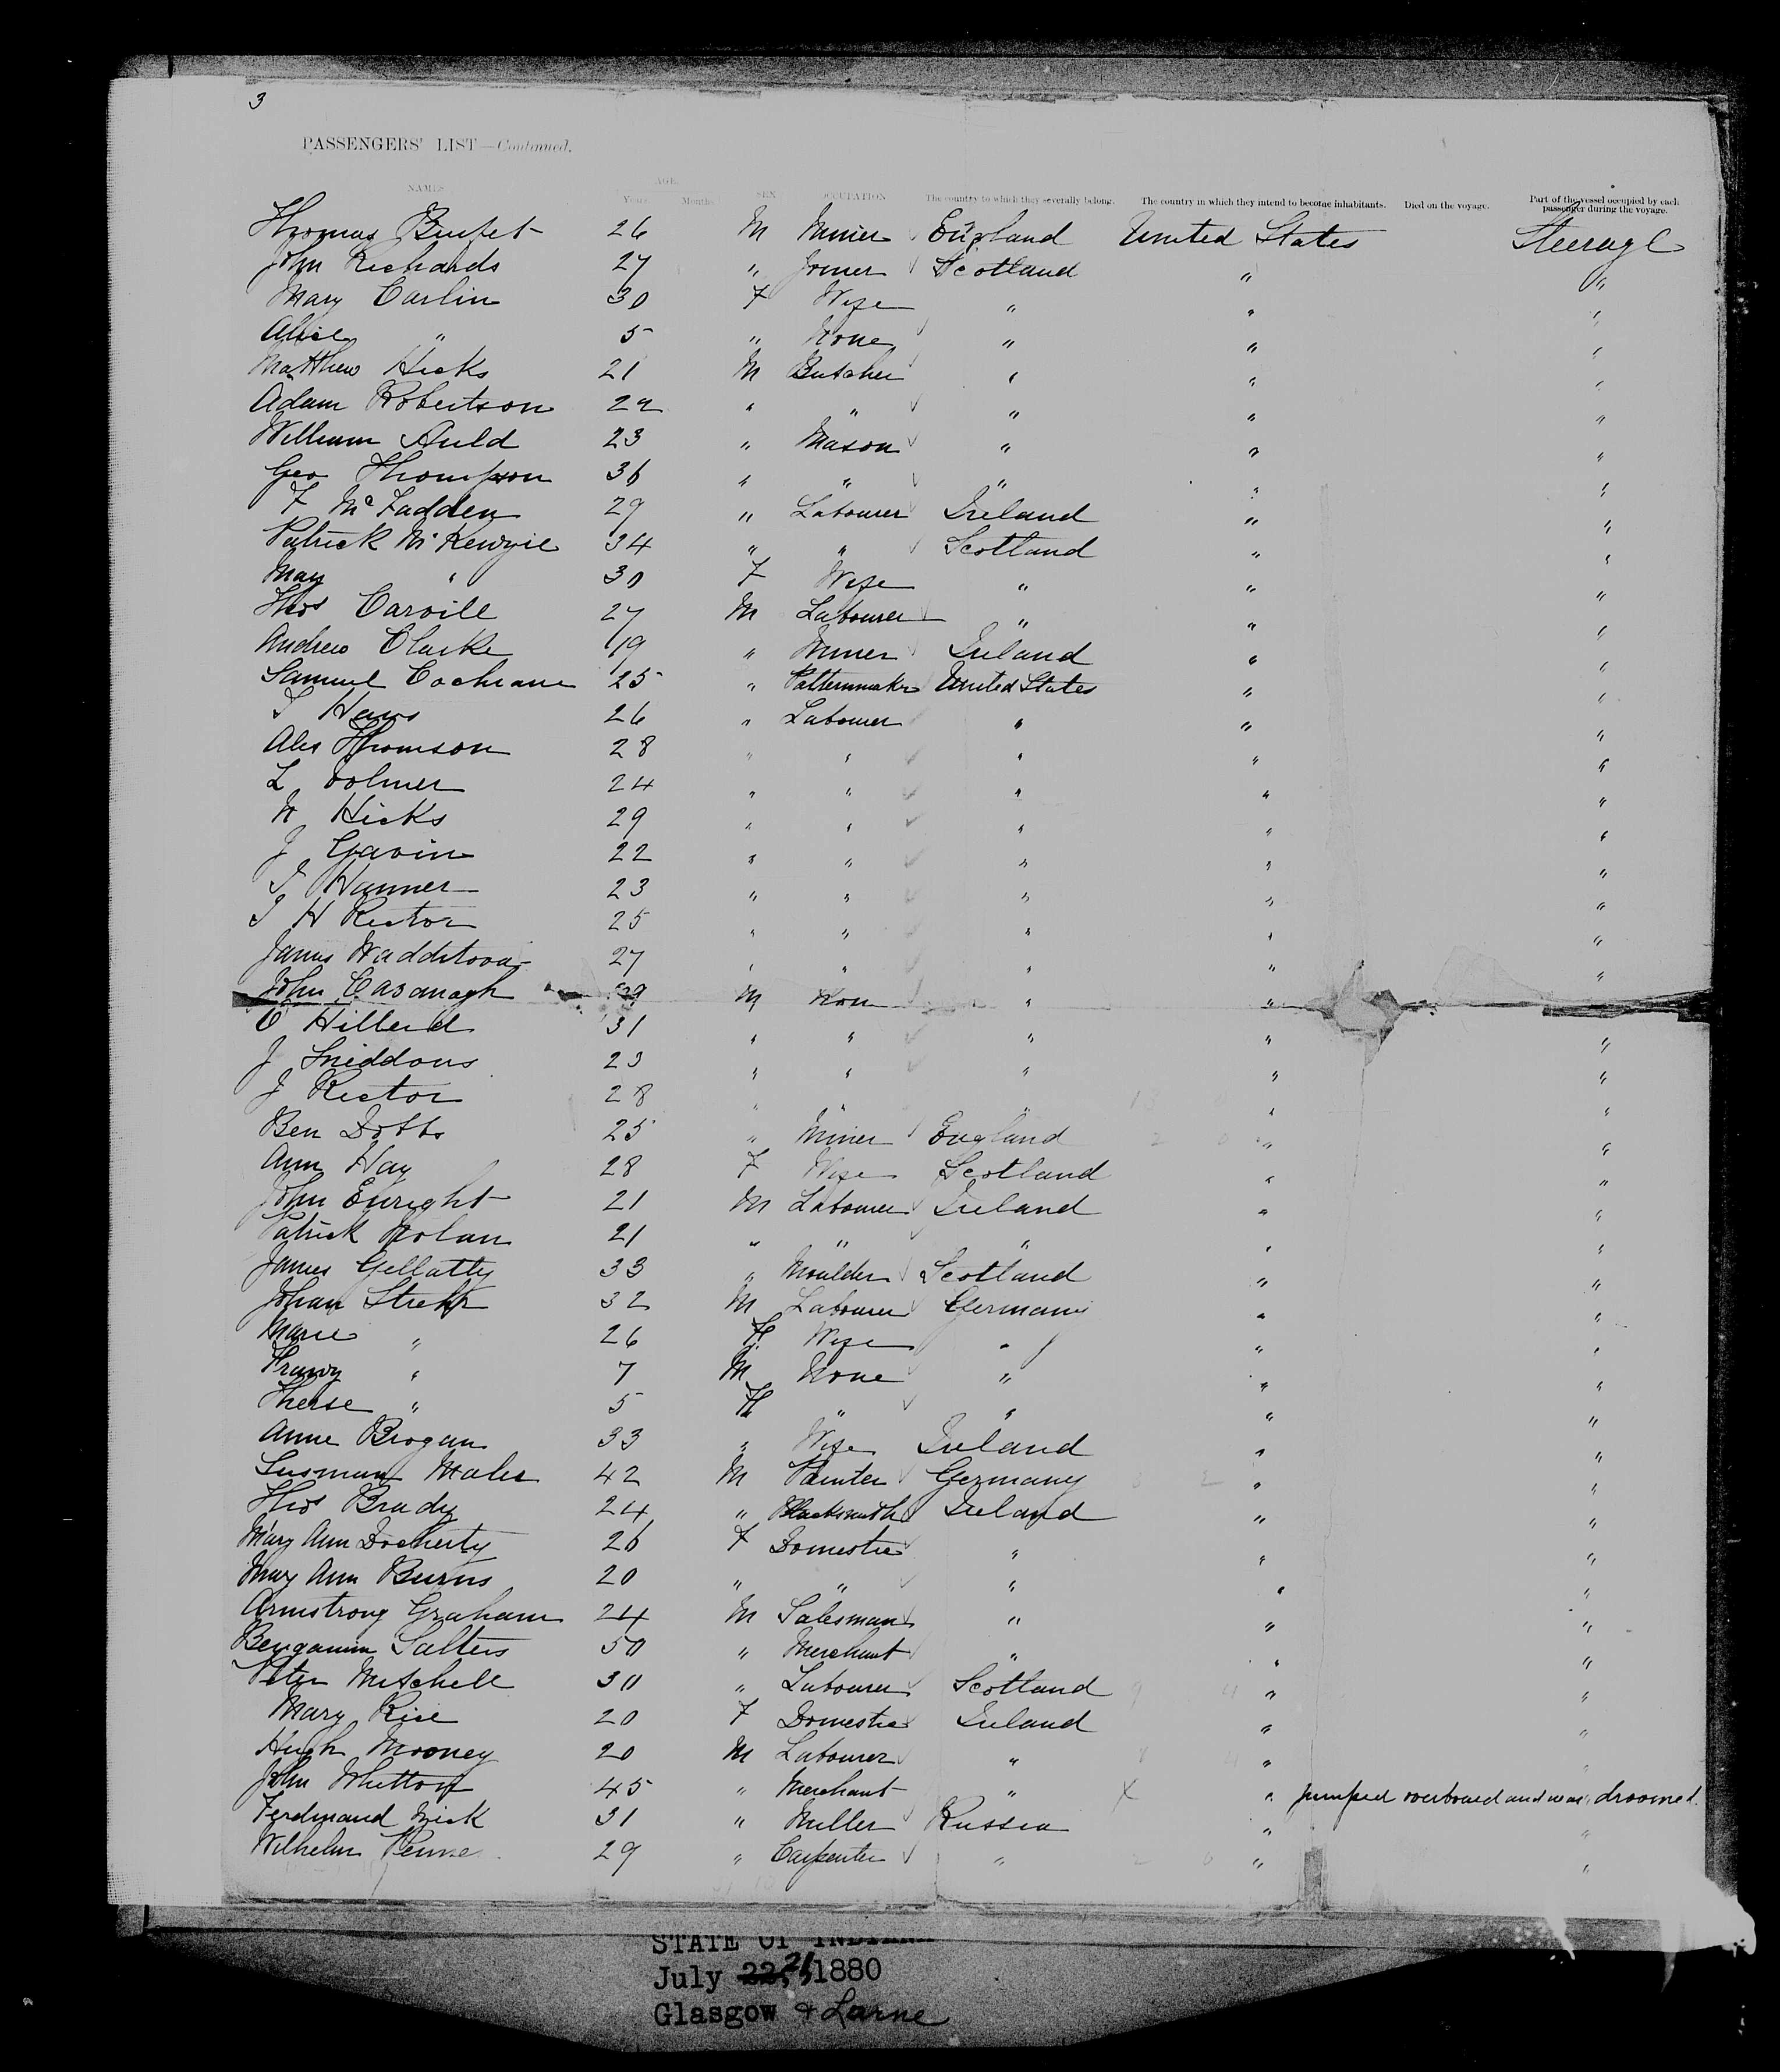 3
PASSENGERS' LIST—Continued.
AGE.
NAMES Years Months SEX OCCUPATION The country to which they severally belong. The country in which they intend to become inhabitants. Died on the voyage. Part of the vessel occupied by each passenger during the voyage.
Thomas 26 M Miner England United States Steerage
John Richards 27 " Joiner Scotland " "
Mary Carlin 30 F Wife " " "
Alice " 5 " None " " "
Matthew Hicks 21 M Butcher " " "
Adam Robertson 29 " " " " "
William Auld 23 " Mason " " "
Geo Thompson 36 " " " " "
F McFadden 29 " Labourer Ireland " "
Patrick McKenzie 34 " " Scotland " "
May " 30 F Wife " " "
Thos Carvill 27 M Labourer " " "
Andrew Clarke 19 " Miner Ireland " "
Samuel Cochrane 25 " Patternmaker United States " "
Haws 26 " Labourer " " "
Alex Thomson 28 " " " " "
L Volmer 24 " " " " "
W Hicks 29 " " " " "
J Gavin 22 " " " " "
Hanner 23 " " " " "
H Rector 25 " " " " "
James 27 " " " " "
John Cavanagh 29 M Non " "
C Hillerd 31 " " " " "
J Sneddons 23 " " " " "
J Rector 28 " " " " "
Ben Dobbs 25 " Miner England " "
Ann Hay 28 F Wife Scotland " "
John Enright 21 M Labourer Ireland " "
Patrick Nolan 21 " " " " "
James Gellatly 33 " Moulder Scotland " "
Johan 32 M Labourer Germany " "
Marie " 26 F Wife " " "
" 7 M None " " "
Therse " 5 F " " " "
Anne Brogan 33 " Wife Ireland " "
Susman Maler 42 M Painter Germany " "
Thos Brady 24 " Blacksmith Ireland " "
Mary Ann Docherty 26 F Domestic " " "
Mary Ann Burns 20 " " " " "
Armstrong Graham 24 M Salesman " " "
Bengamin Salters 50 " Merchant " " "
Peter Mitchell 30 " Labourer Scotland " "
Mary Rice 20 F Domestic Ireland " "
Hugh Mooney 20 M Labourer " " "
John Whitton 45 " Merchant " X " jumped overboard and was drowned.
Ferdinand Zick 31 " Miller Russia " "
Wilhelm 29 " Carpenter " " "
STATE OF INDIANA
July 22, 21, 1880
Glasgow & Larne